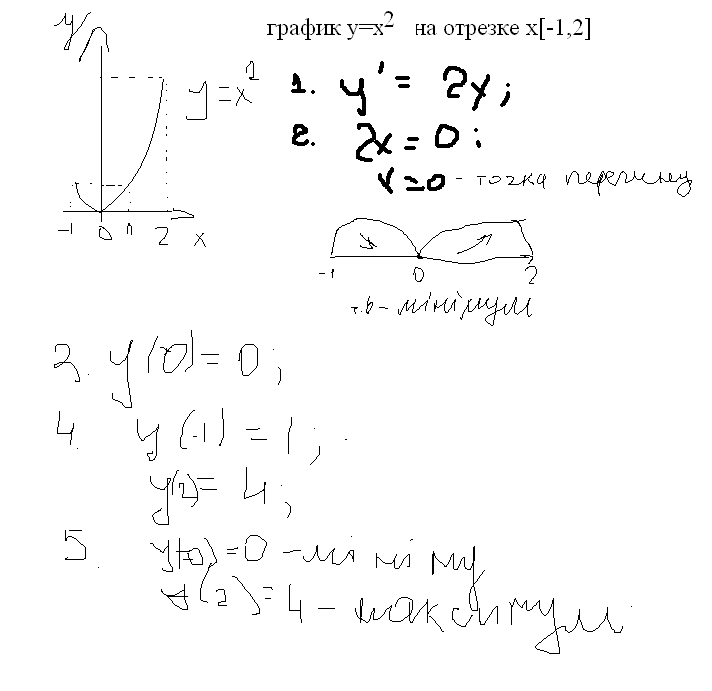 график y=x² на отрезке x[-1,2]
y
y=x²
-1 0 1 2 x
1. y' = 2x;
2. 2x=0;
x=0 - точка перегину
-1 0 2
т.0 - мінімум
3. y(0)=0;
4. y(-1) = 1;
y(2)= 4;
5. y(0)=0 - мініму
y(2)=4 - максимум